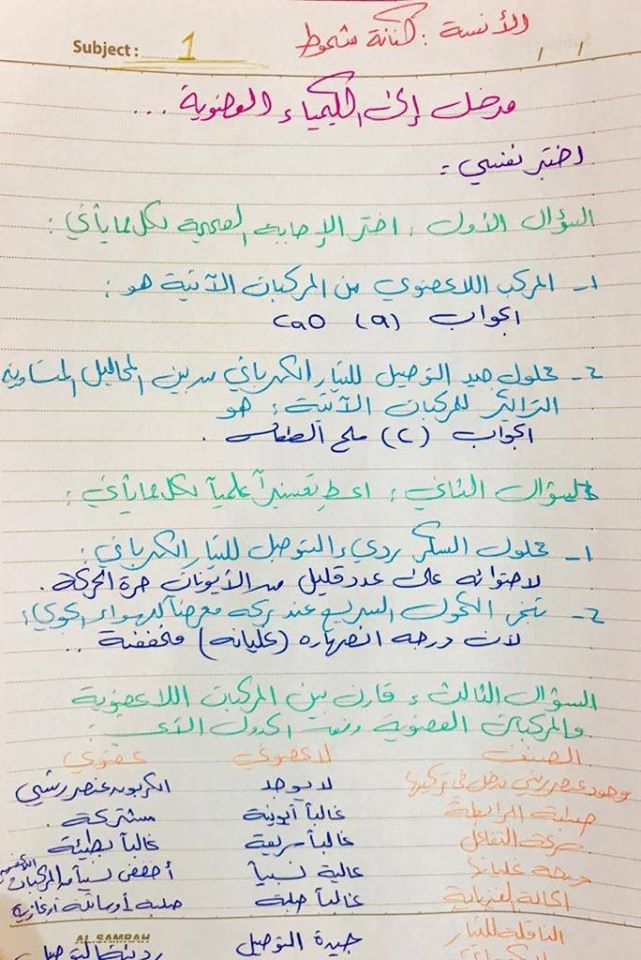 الآنسة : كنانة شحوط
Subject : 1
/ /
مدخل إلى الكيمياء العضوية ...
اختبر نفسي :
السؤال الأول : اختر الإجابة الصحيحة لكل مما يأتي :
1- المركب اللاعضوي من المركبات الآتية هو :
الجواب (a) CaO
2- محلول جيد التوصيل للتيار الكهربائي من بين المحاليل المتساوية
التراكيز للمركبات الآتية : هو
الجواب (c) ملح الطعام .
السؤال الثاني : اعط تفسيراً علمياً لكل مما يأتي :
1- محلول السكر رديء التوصيل للتيار الكهربائي :
لاحتوائه على عدد قليل من الأيونات حرة الحركة .
2- تبخر الكحول السريع عند تركه معرضاً للهواء الجوي :
لأن درجة انصهاره (غليانه) منخفضة ..
السؤال الثالث : قارن بين المركبات اللاعضوية
والمركبات العضوية وفق الجدول الآتي :
الصنف لا عضوي عضوي
وجود عنصر رئيسي يدخل في تركيبها لا يوجد الكربون عنصر رئيسي
طبيعة الرابطة غالباً أيونية مشتركة
سرعة التفاعل غالباً سريعة غالباً بطيئة
درجة غليانها عالية نسبياً أخفض نسبياً من المركبات
الحالة الفيزيائية غالباً صلبة صلبة أو سائلة أو غازية
الناقلية للتيار جيدة التوصيل رديئة التوصيل
الكهربائي
AL.SAMRAH